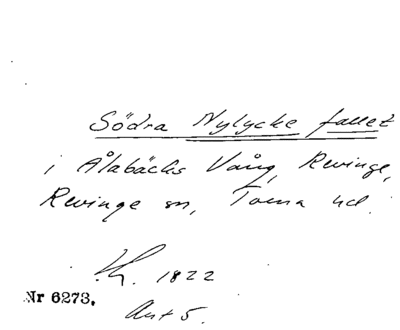 Södra Nylycke fallet
i Ålabäcks Vång, Revinge,
Revinge sn, Torna hd.
Kh. 1822
Nr 6273.
Akt 5.